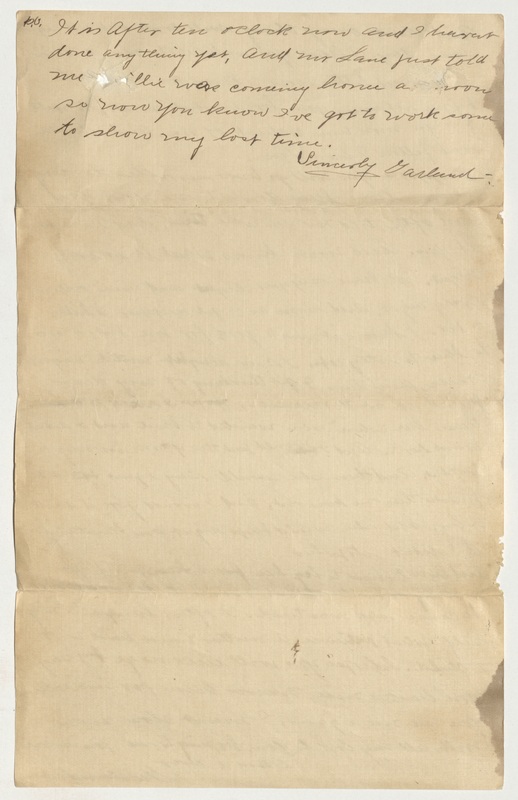 P.S.
It is After ten oclock now and I havent
done anything yet, And Mr Lane just told
me illie was comeing home a noon
so now you know I've got to work some
to show my lost time.
Sincerly Garland-